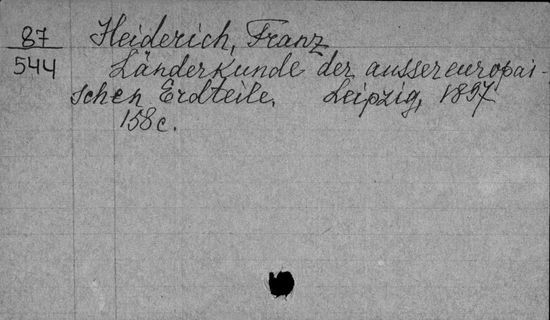 87
544
Heiderich, Franz
Länderkunde der aussereuropäi-
schen Erdteile. Leipzig, 1897
158 c.